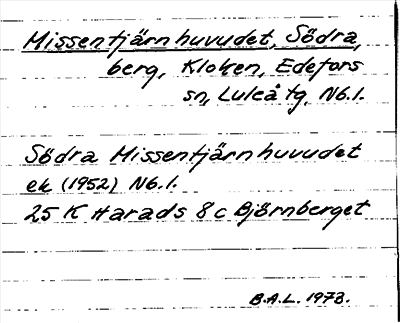 Missentjärnhuvudet, Södra,
berg, Kloken, Edefors
sn, Luleå tg, N6.1.
Södra Missentjärnhuvudet
ek (1952) N6.1.
25 K Harads 8c Björnberget
B.A.L. 1973.